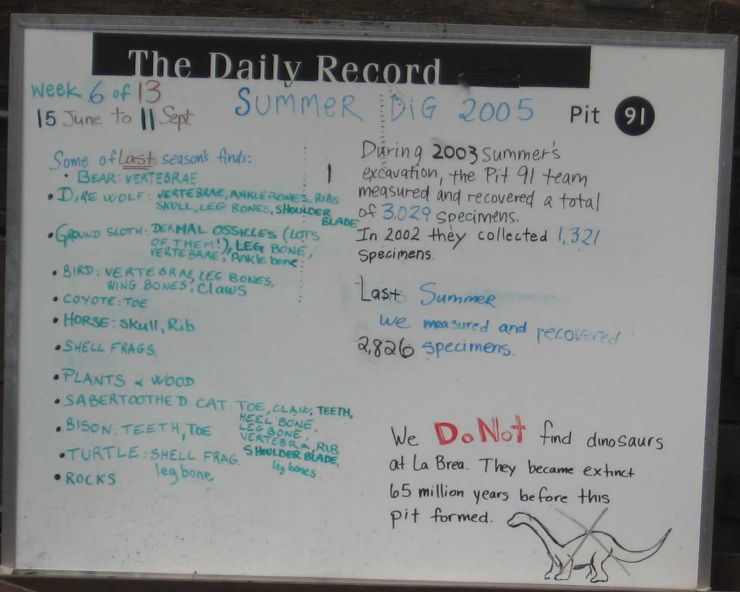 The Daily Record
Week 6 of 13
15 June to 11 Sept
SUMMER DIG 2005
Pit 91
Some of last season's finds:
• BEAR: VERTEBRAE
• DIRE WOLF: VERTEBRAE, ANKLE BONES, RIBS
SKULL, LEG BONES, SHOULDER
BLADE
• GROUND SLOTH: DERMAL OSSICLES (LOTS
OF THEM!), LEG BONE,
VERTEBRAE, Ankle bone
• BIRD: VERTEBRAE, LEG BONES,
WING BONES, Claws
• COYOTE: TOE
• HORSE: Skull, Rib
• SHELL FRAGS.
• PLANTS & WOOD
• SABERTOOTHED CAT: TOE, CLAW, TEETH,
HEEL BONE,
LEG BONE,
VERTEBRA, RIB
SHOULDER BLADE,
leg bones
• BISON: TEETH, TOE
• TURTLE: SHELL FRAG.
leg bone
• ROCKS
During 2003 Summer's
excavation, the Pit 91 team
measured and recovered a total
of 3,029 specimens.
In 2002 they collected 1,321
specimens.
Last Summer
we measured and recovered
2,826 specimens.
We Do Not find dinosaurs
at La Brea. They became extinct
65 million years before this
pit formed.